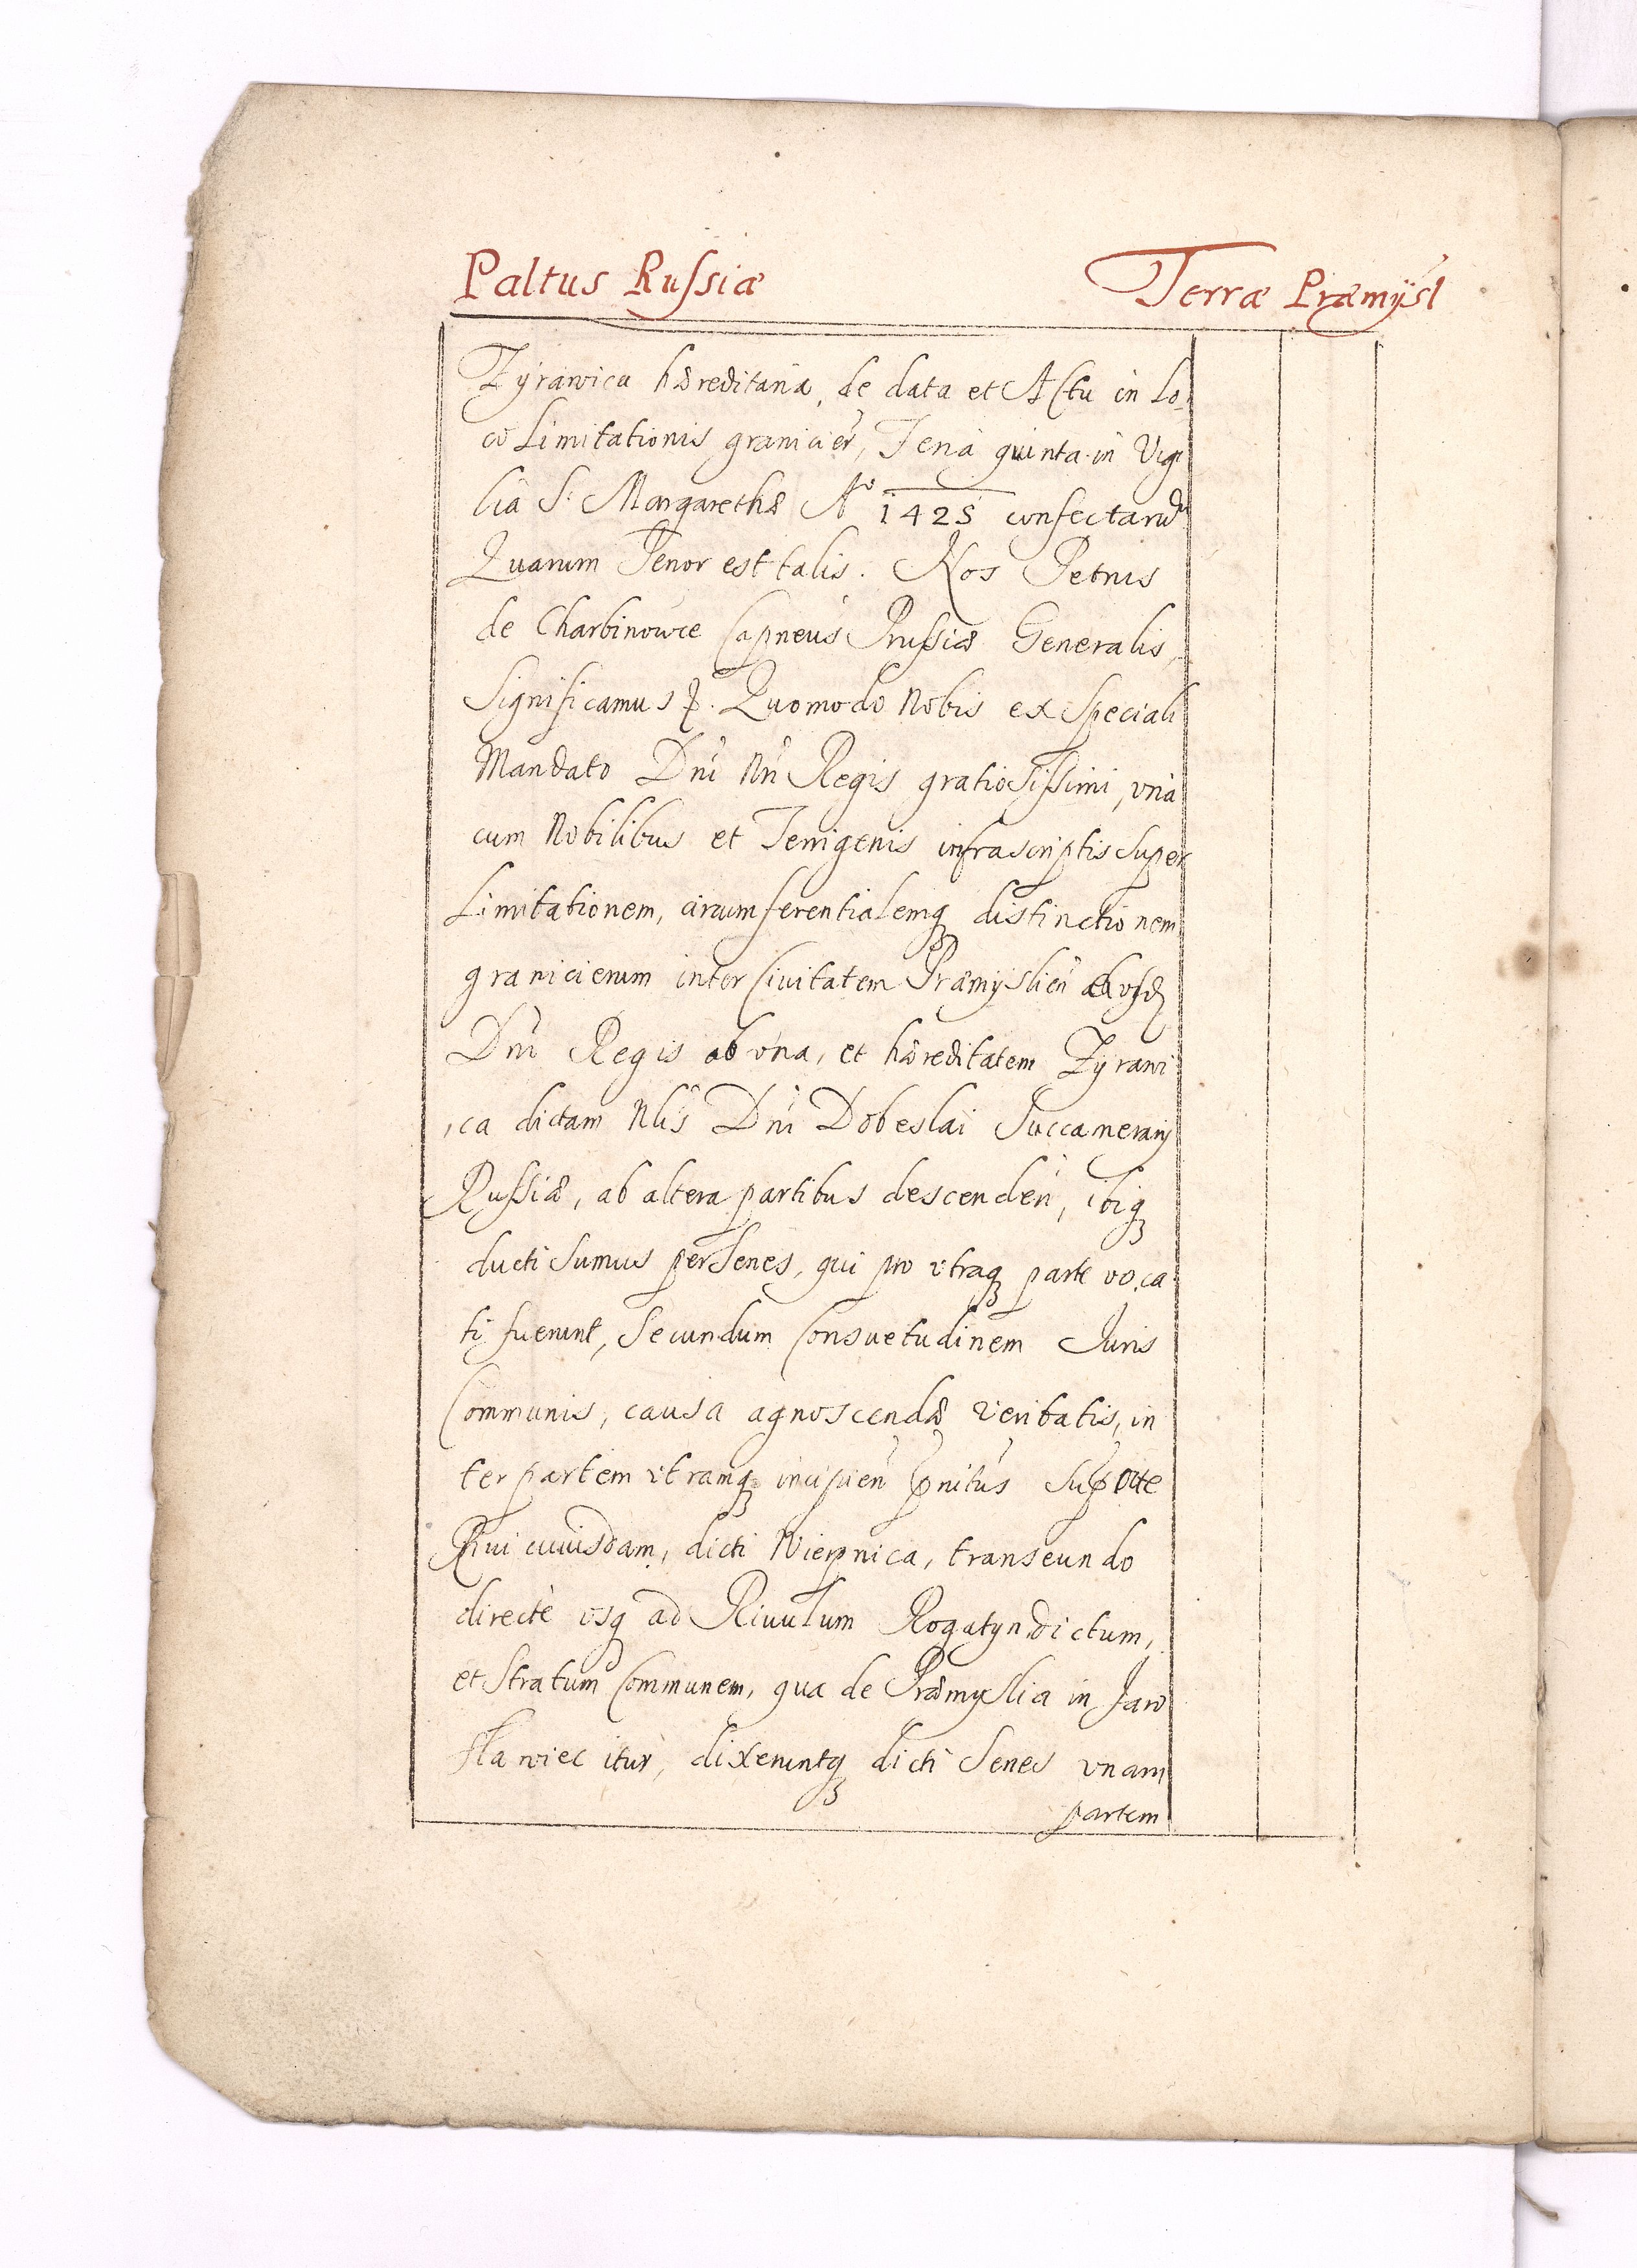 Paltus Russiæ Terræ Præmÿsl
Zÿrawica hæreditaria, de data et Actu in Lo,
co Limitationis granicieῆ, Feria quinta in Vigi
lia S. Margarethæ A° 1425 confectaru
Quarum Tenor est talis. Nos Petrus
de Charbinowce Capneus Russiæ Generalis,
Significamus &. Quomodo Nobis ex Speciali
Mandato Dni Nri Regis gratiosissimi, vnà
cum Nobilibus et Terrigenis infrascriptis Super
Limitationem, circumferentialemq distinctionem
granicierum inter Civitatem Præmÿslień
Dni Regis ab vna, et hæreditatem Zÿrawi
,ca dictam Nlis Dni Dobeslai Succamerarÿ
Russiæ, ab altera partibus descendeń, ibiq
ducti Sumus per Senes, qui pro vtraq parte voca
ti fuerunt, Secundum Consuetudinem Juris
Communis, causa agnoscendæ veritatis, in
ter partem vtramq incipień pnitus
Rivi cuiusdam, dicti Wierpnica, transeundo
directè vsq ad Rivulum Rogatyn dictum,
et Stratum Communem, qua de Præmyslia in Jaro
slawiec itur, dixeruntq dicti Senes vnam
partem